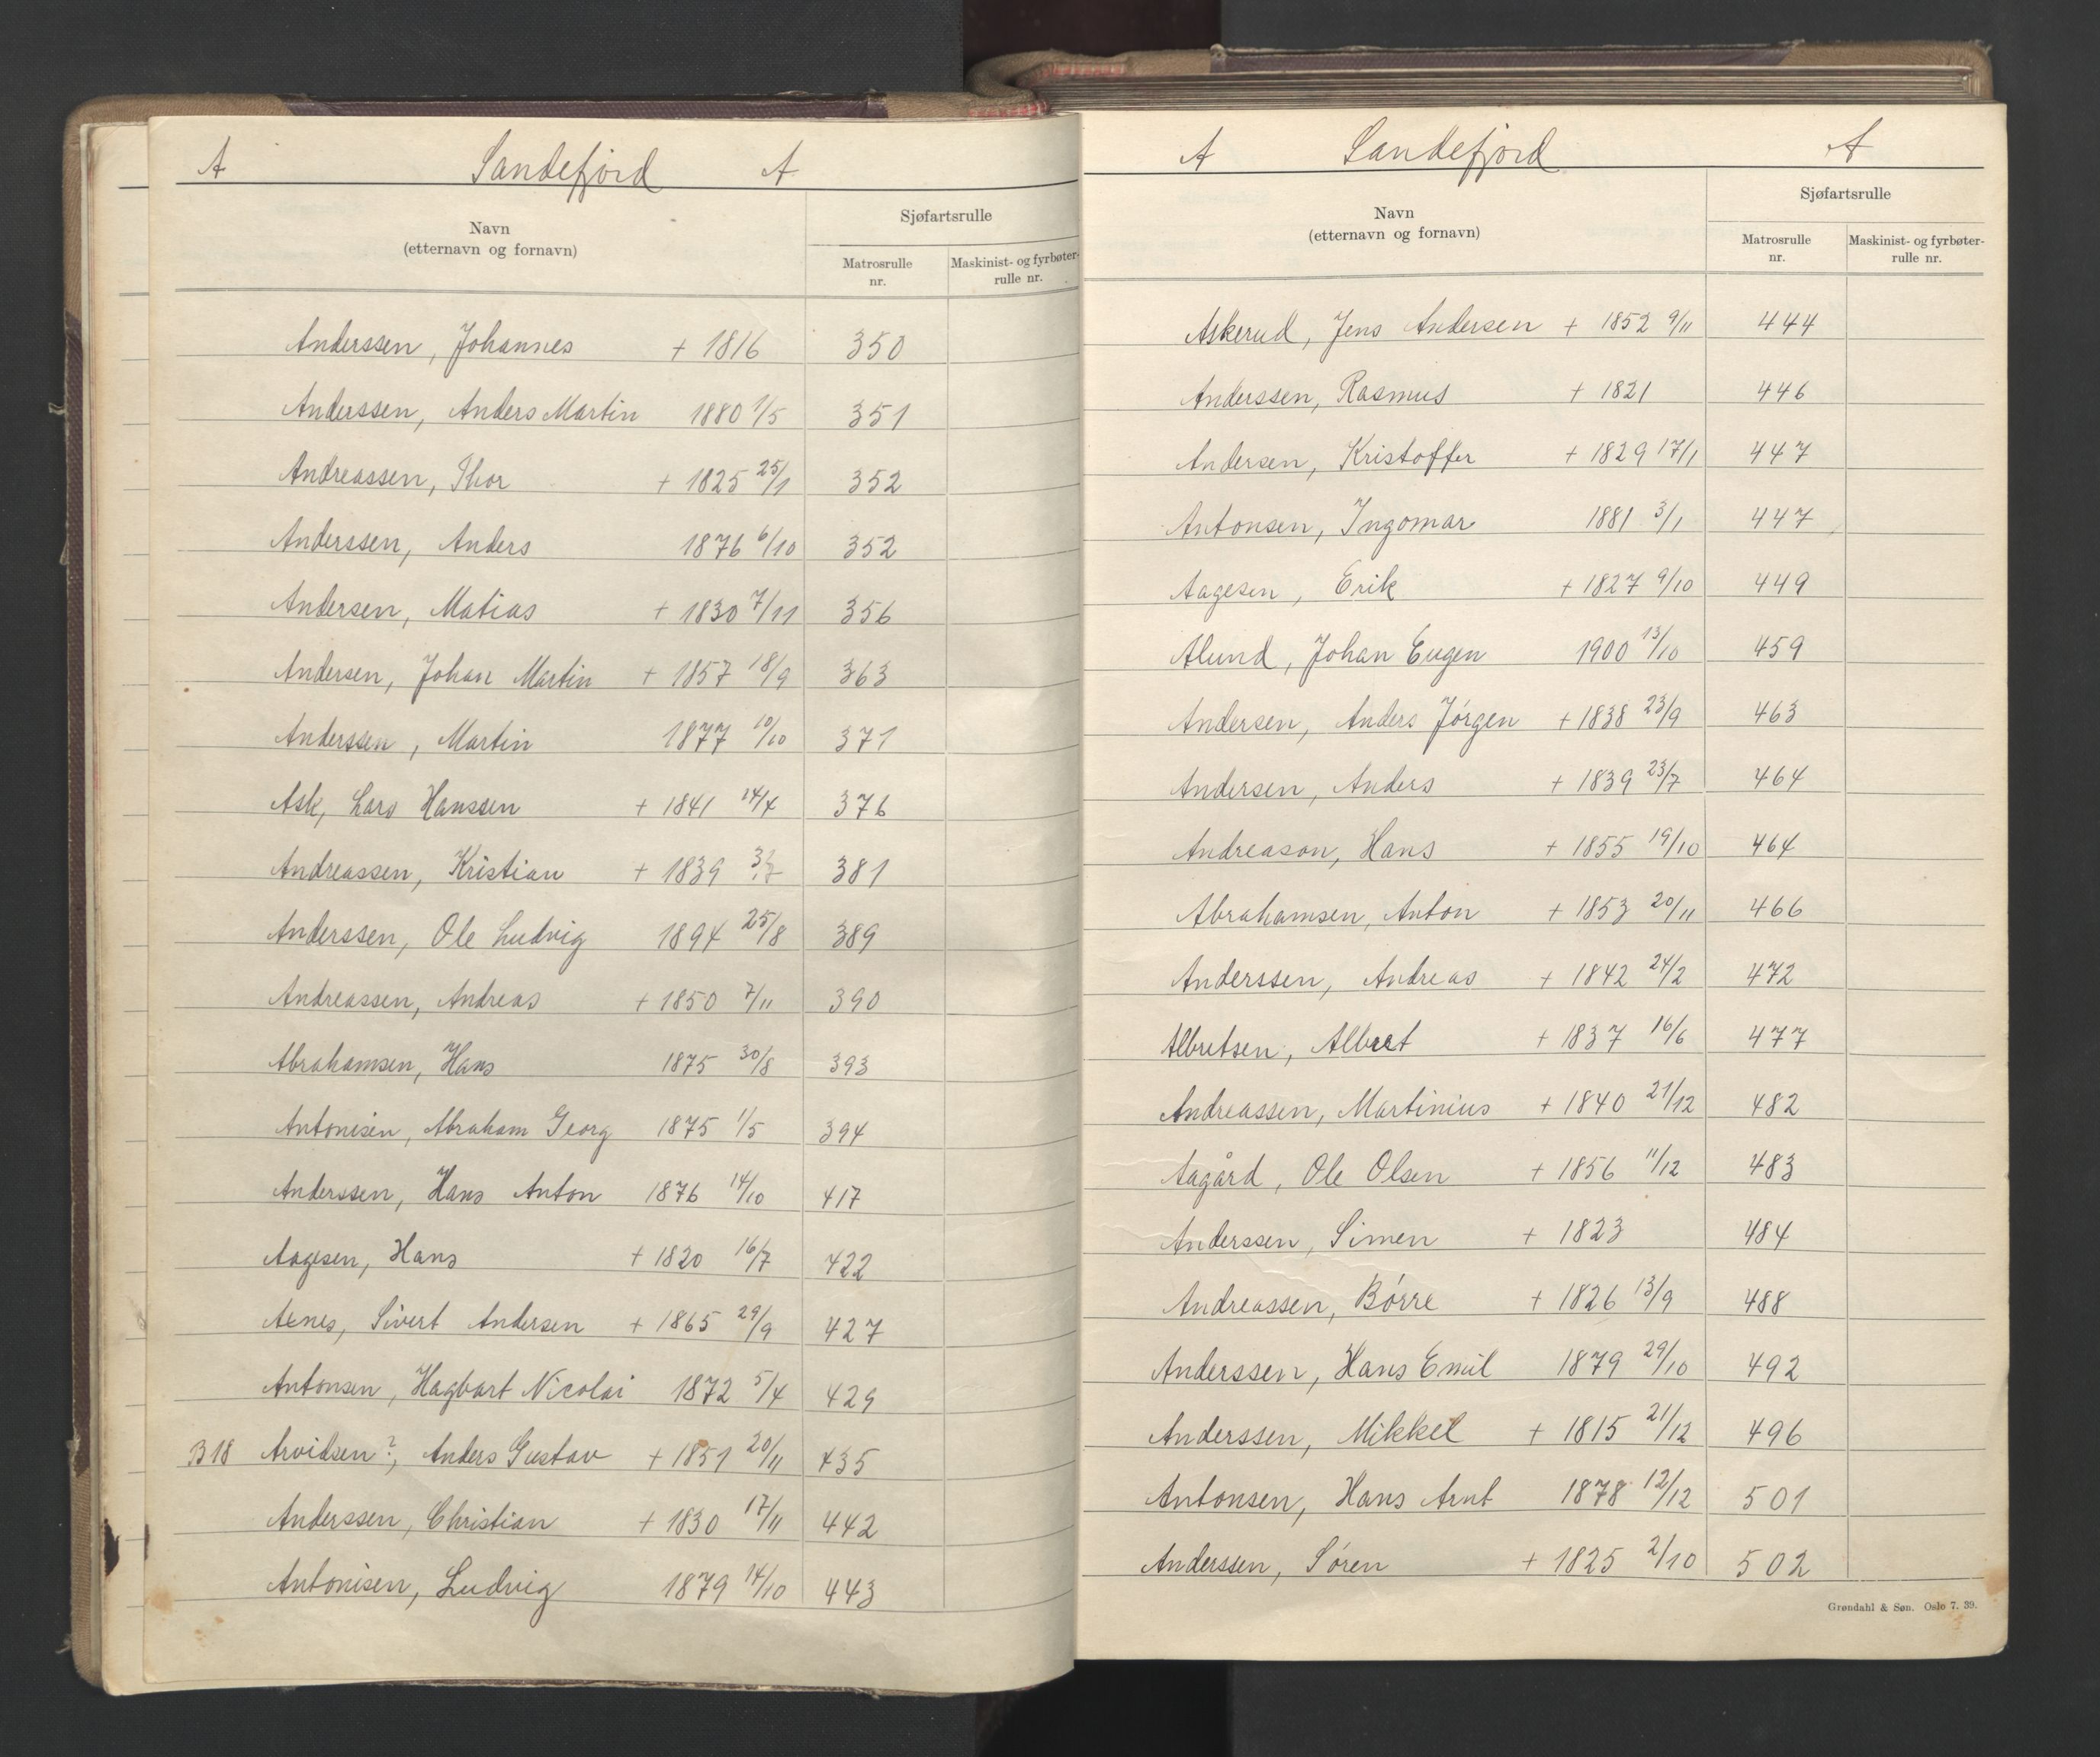 A Sandefjord A
Navn
(etternavn og fornavn)
Sjøfartsrulle
Matrosrulle
nr.
Maskinist- og fyrbøter-
rulle nr.
Anderssen, Johannes + 1816 350
Anderssen, Anders Martin 1880 1/5 351
Andreassen, Thor + 1825 25/1 352
Anderssen, Anders 1876 6/10 352
Andersen, Matias + 1830 7/11 356
Andersen, Johan Martin + 1857 18/9 363
Anderssen, Martin 1877 10/10 371
Ask, Lars Hanssen + 1841 14/4 376
Andreassen, Kristian + 1839 381
Anderssen, Ole Ludvig 1894 25/8 389
Andreassen, Andreas + 1850 7/11 390
Abrahamsen, Hans 1875 30/8 393
Antonisen, Abraham Georg 1875 1/5 394
Anderssen, Hans Anton 1876 14/10 417
Aagesen, Hans + 1820 16/7 422
Aenes, Sivert Andersen + 1865 29/9 427
Antonsen, Hagbart Nicolai 1872 5/4 429
B18 Arvidsen?, Anders Gustav + 1851 20/11 435
Anderssen, Christian + 1830 17/11 442
Antonisen, Ludvig 1879 14/10 443
A Sandefjord A
Navn
(etternavn og fornavn)
Sjøfartsrulle
Matrosrulle
nr.
Maskinist- og fyrbøter-
rulle nr.
Askerud, Jens Andersen + 1852 9/11 444
Anderssen, Rasmus + 1821 446
Andersen, Kristoffer + 1829 17/1 447
Antonsen, Ingomar 1881 3/1 447
Aagesen, Erik + 1827 9/10 449
Alund, Johan Eugen 1900 13/10 459
Andersen, Anders Jörgen + 1838 23/9 463
Andersen, Anders + 1839 23/7 464
Andreason, Hans + 1855 19/10 464
Abrahamsen, Anton + 1853 20/11 466
Anderssen, Andreas + 1842 24/2 472
Albretsen, Albret + 1837 16/6 477
Andreassen, Martinius + 1840 21/12 482
Aagård, Ole Olsen + 1856 11/12 483
Anderssen, Simen + 1823 484
Andreassen, Börre + 1826 13/9 488
Anderssen, Hans Emil 1879 29/10 492
Anderssen, Mikkel + 1815 21/12 496
Antonsen, Hans Arnt 1878 12/12 501
Anderssen, Sören + 1825 2/10 502
Grøndahl & Søn. Oslo 7. 39.